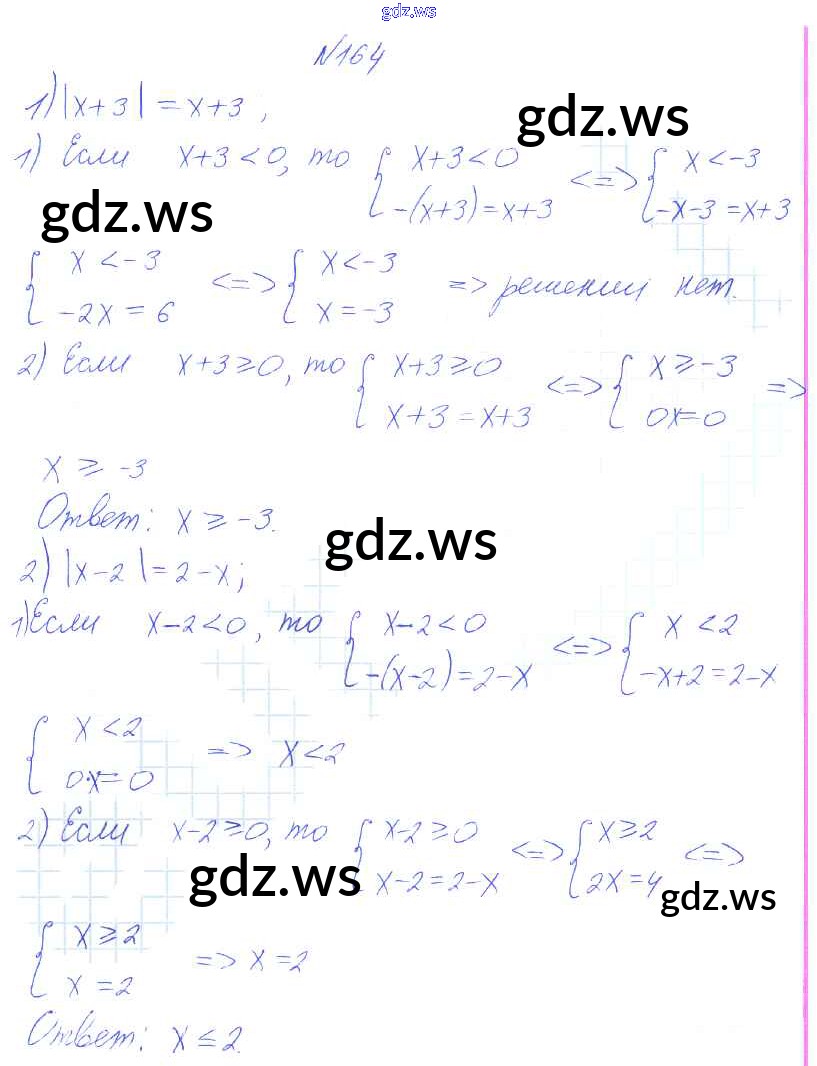 gdz.ws
№164
1) |x+3| = x+3 ,
gdz.ws
1) Если x+3<0, то { x+3<0 -(x+3)=x+3 <=> { x<-3 -x-3=x+3
gdz.ws
{ x<-3 -2x=6 <=> { x<-3 x=-3 => решений нет.
2) Если x+3≥0, то { x+3≥0 x+3=x+3 <=> { x≥-3 0x=0 =>
x ≥ -3
Ответ: x ≥ -3.
gdz.ws
2) |x-2|=2-x;
1) Если x-2<0, то { x-2<0 -(x-2)=2-x <=> { x<2 -x+2=2-x
{ x<2 0·x=0 => x<2
2) Если x-2≥0, то { x-2≥0 x-2=2-x <=> { x≥2 2x=4 <=>
gdz.ws
gdz.ws
{ x≥2 x=2 => x=2
Ответ: x ≤ 2.